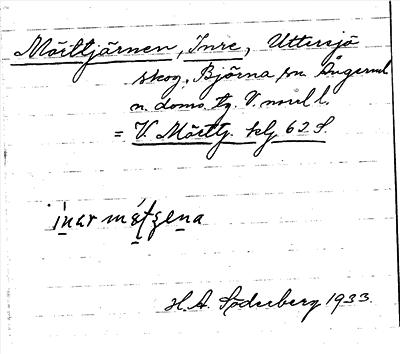 Möittjärnen, Inre, Uttersjö
skog, Björna sn Ångerml
n. doms. tg. V. norrl l.
= V. Möittj. klj 62 S.
ínar mɛ́tʃena
H.A. Söderberg 1933.